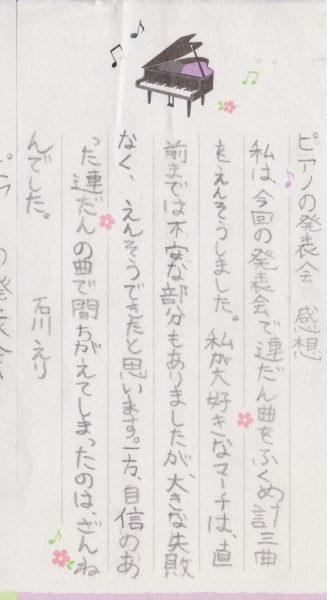 ピアノの発表会 感想
私は、今回の発表会で連だん曲をふくめ計三曲
をえんそうしました。私が大好きなマーチは、直
前までは不安な部分もありましたが、大きな失敗
なく、えんそうできたと思います。一方、自信のあ
った連だんの曲で間ちがえてしまったのは、ざんね
んでした。 石川えり